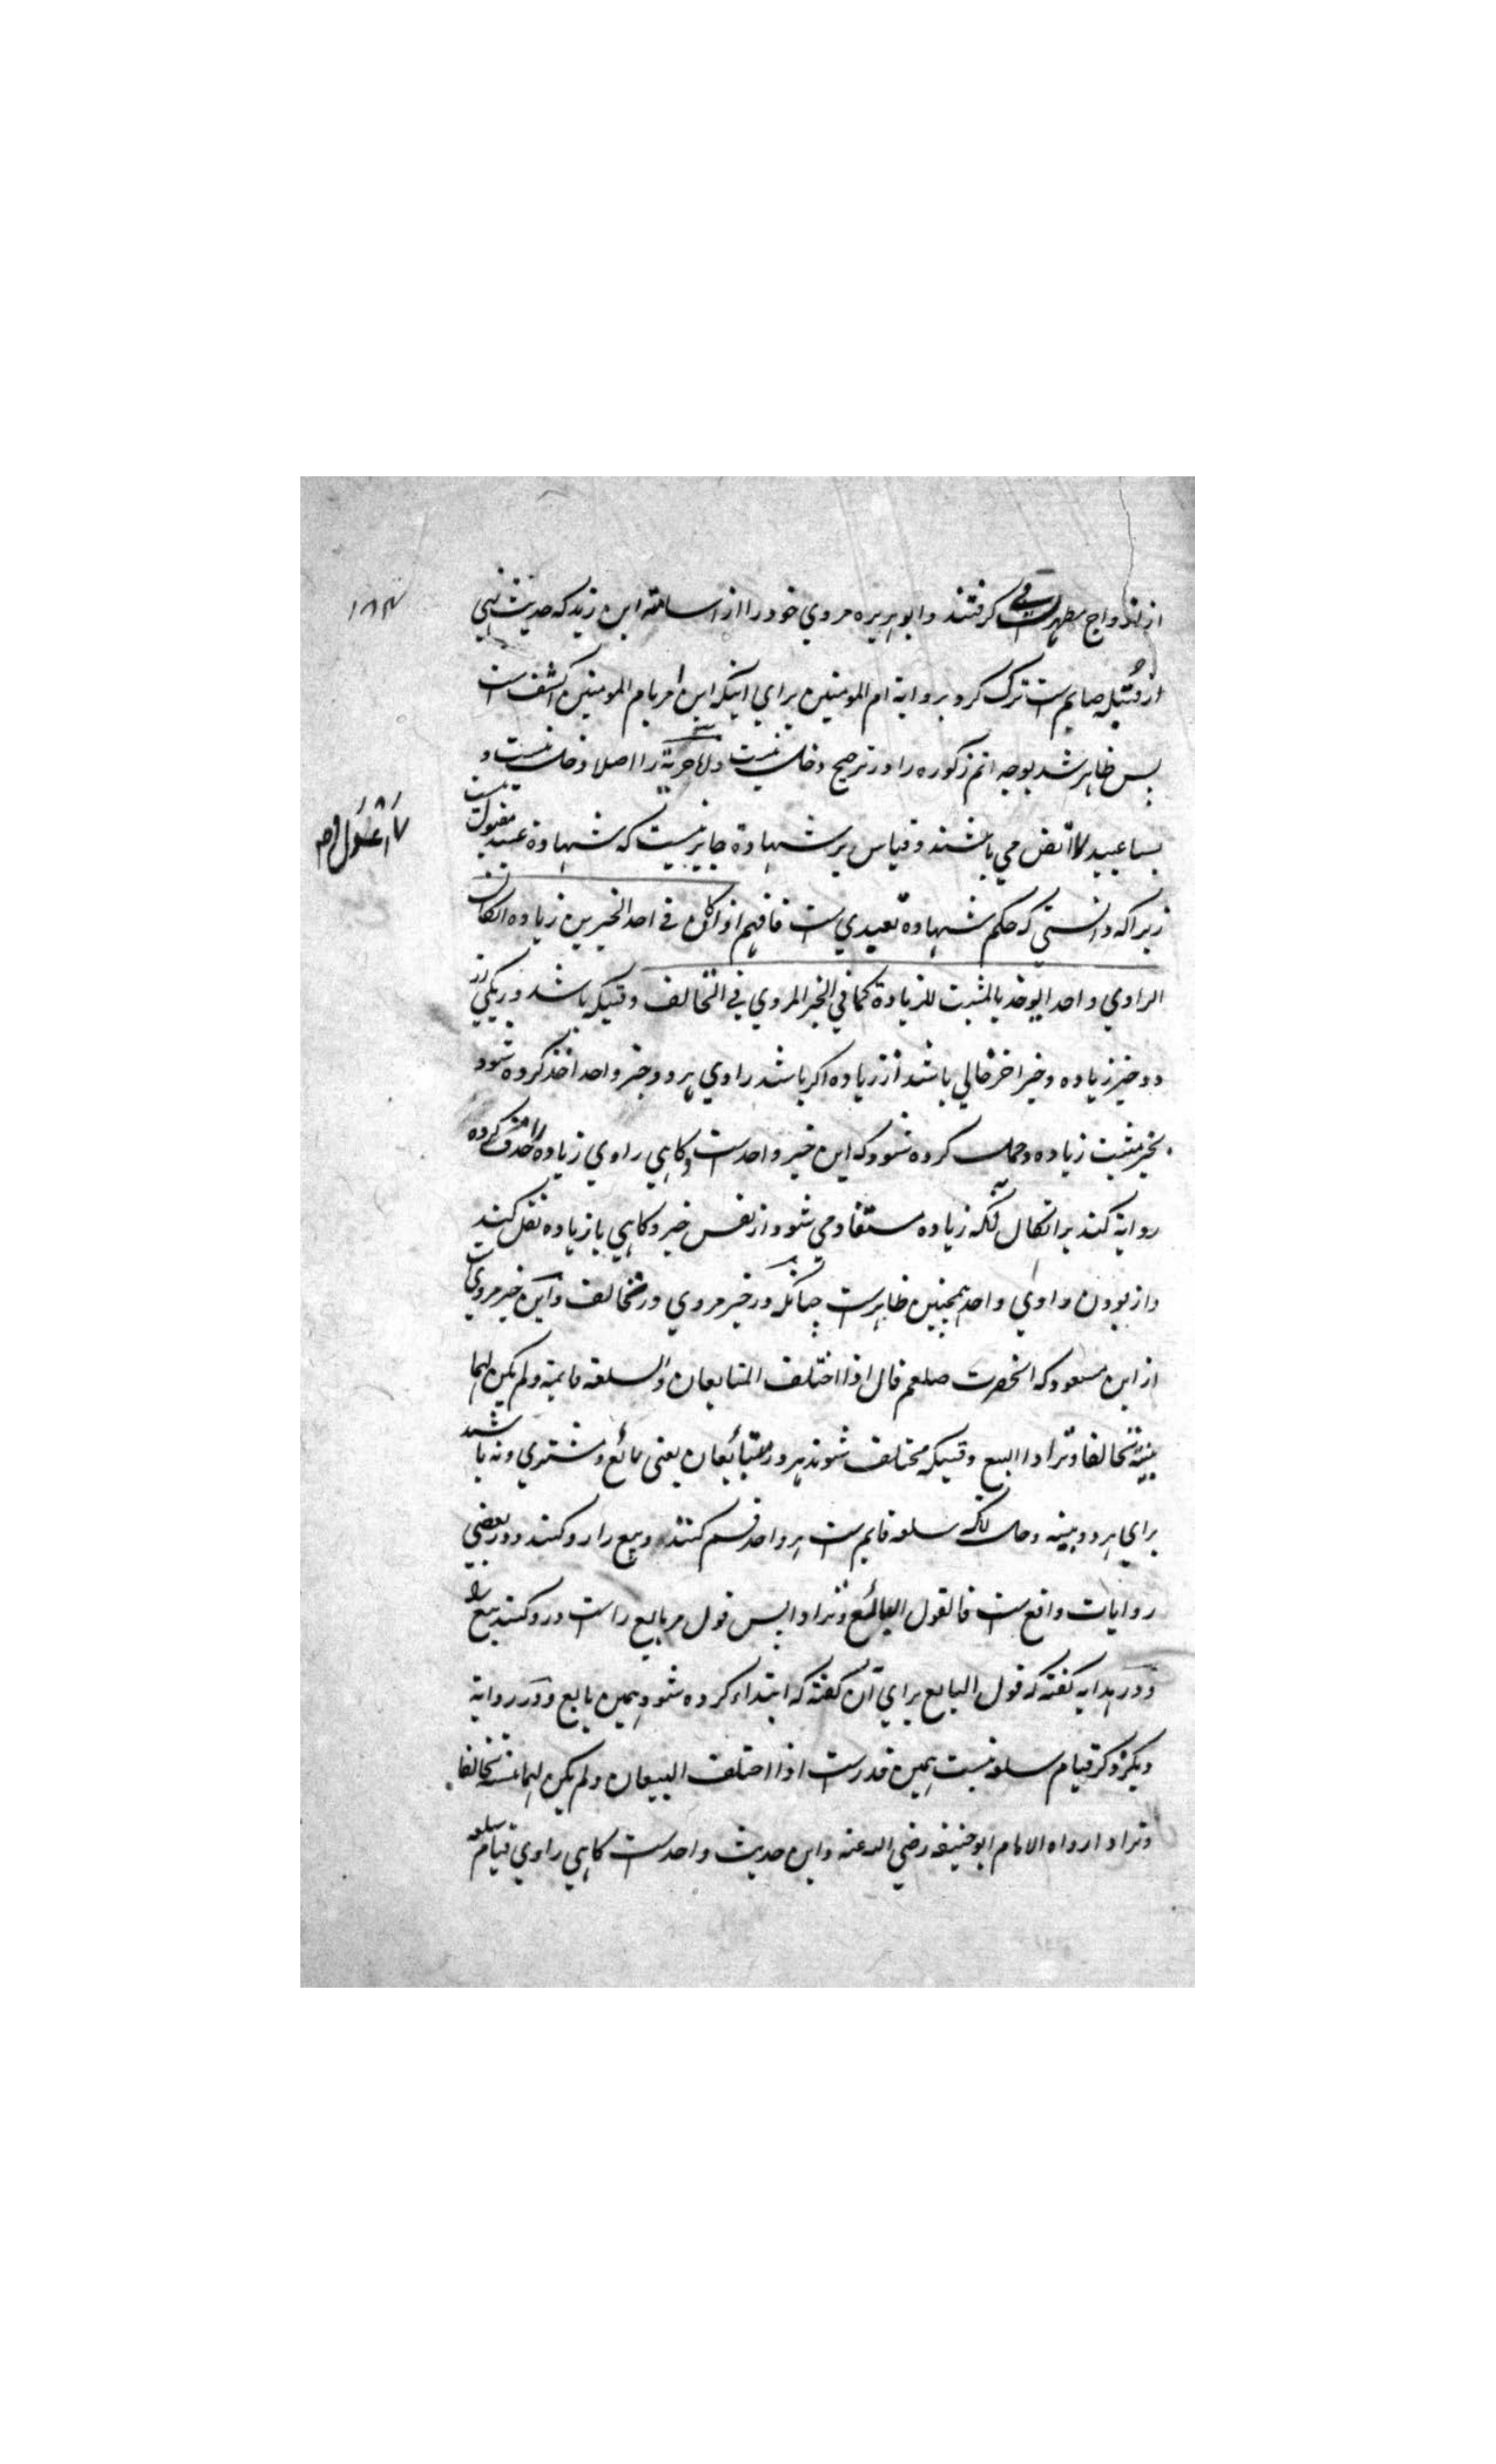 از ازواج مطهرات گرفتند و ابو هریره مروی خود را از اسامة ابن زید که حدیث نهی
از قُبیله صایم ست ترک کرد بروایة ام المومنین برای اینکه این امر بام المومنین اکشف ست
پس ظاهر شد بوجه اتم ذکوره را در ترجیح دخل نیست و حریة را اصلا دخل نیست و
بسا عبید اتقن می باشند و قیاس بر شهادة جایز نیست که شهادة عبید مقبول نیست
زیرا که دانستی که حکم شهادة تعبدی ست فافهم اذا کان فی احد الخبرین زیادة ان کان
الراوی واحدا یوخذ بالمثبت للزیادة کما فی الخبر المروی فی التحالف وقتیکه باشد در یکی از
دو خبر زیاده و خبر اخر خالی باشد از زیاده اگر باشد راوی هر دو خبر واحد اخذ کرده شود
بخبر مثبت زیاده و حمل کرده شود که این خبر واحد ست و گاهی راوی زیاده را حذف کرده
روایة کند بر اتکال آنکه زیاده مستفاد می شود از نفس خبر و گاهی با زیاده نقل کند
و از بودن راوی واحد همچنین ظاهر ست چنانکه در خبر مروی در تخالف و این خبر مروی ست
از ابن مسعود که انحضرت صلعم قال اذا اختلف المتبایعان والسلعة قایمة ولم یکن لهما
بینة تحالفا وترادا البیع وقتیکه مختلف شوند هر دو متبائعان یعنی بائع و مشتری و نه باشد
برای هر دو بینه و حال آنکه سلعه قایم ست هر واحد قسم کنند و بیع را رد کنند و در بعضی
روایات واقع ست فالقول البائع وترادا پس قول مر بایع راست و رد کنند بیع را
و در هدایه گفته که قول البایع برای آن گفته که ابتداء کرده شود بیمین بایع و در روایة
دیگر ذکر قیام سلعه نیست همین قدر ست اذا اختلف البیعان ولم یکن لهما بینة تحالفا
وترادا رواه الامام ابو حنیفه رضی الله عنه و این حدیث واحد ست گاهی راوی قیام سلعه